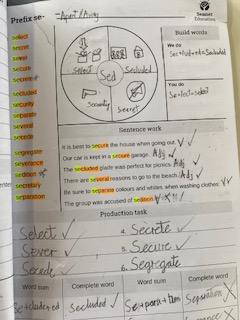 Prefix se-
-Apart/Away
Seanet
Education
select
secret
sever
secure
secrete
secluded
security
separate
several
secede
segregate
severance
sedition
secretary
separation
Select
Secluded
Sed
Security
Secret
Build words
We do
You do
Se+lect=select
Sentence work
It is best to secure the house when going out. V
Our car is kept in a secure garage. Adj
The secluded glade was perfect for picnics. Adj
There are several reasons to go to the beach. Adj
Be sure to separate colours and whites when washing clothes. V
The group was accused of sedition
Production task
Select
4. Secrete
Sever
5. Secure
Secede
6. Segregate
Word sum
Complete word
Word sum
Complete word
Secluded
Separation